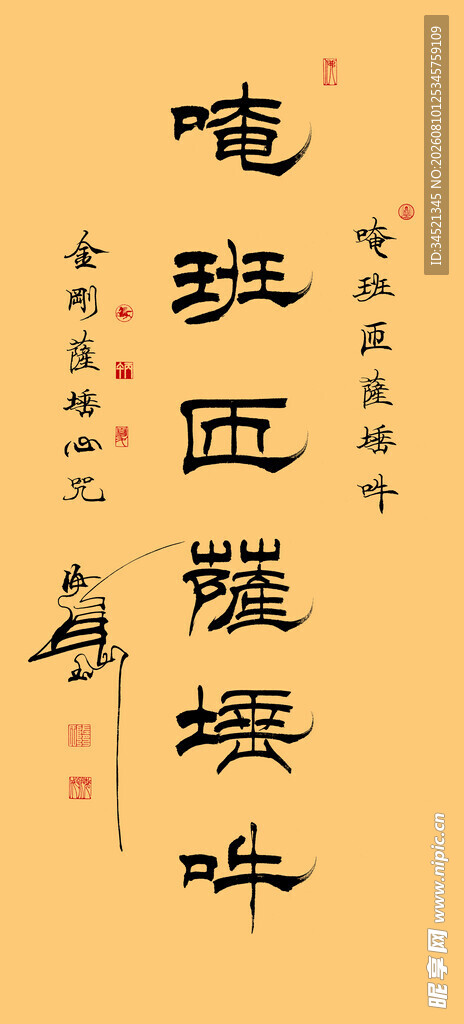 唵班匝薩埵吽
唵班匝薩埵吽
金剛薩埵心咒
ID:34521345 NO:20260810125345759109
昵享网 www.nipic.cn